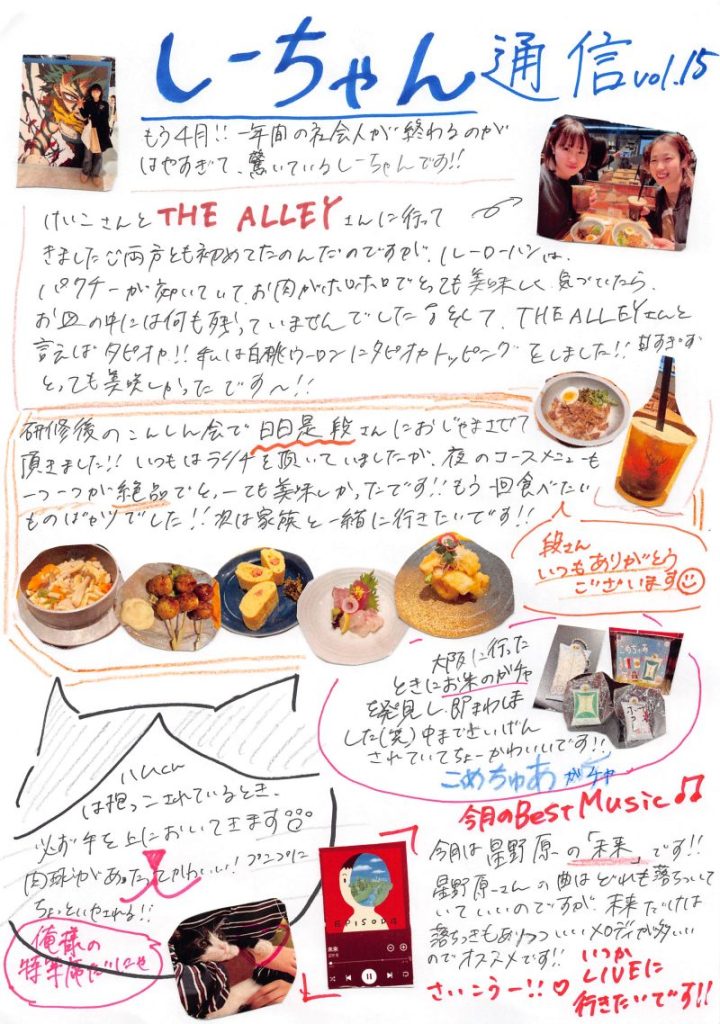 しーちゃん通信 vol.15
もう4月!! 一年間の社会人が終わるのが
はやすぎて、驚いているしーちゃんです!!
けいこさんと THE ALLEY さんに行って
きましたご両方とも初めてたのんだのですが、ルーローハンは、
パクチーが効いていて、お肉がホロホロでとっても美味しく、気づいたら、
お皿の中には何も残っていませんでした そして、THE ALLEYさんと
言えばタピオカ!! 私は白桃ウーロンにタピオカトッピングをしました!! 甘すぎず
とっても美味しかったです〜!!
研修後のこんしん会で 日日是段さんにおじゃまさせて
頂きました!! いつもはランチを頂いていましたが、夜のコースメニューも
一つ一つが絶品でと、っても美味しかったです!! もう一回食べたい
ものばかりでした!! 次は家族と一緒に行きたいです!!
段さん
いつもありがとう
ございます
大阪に行った
ときにお米のガチャ
を発見し、即まわしま
した(笑) 中まできいげん
されていてちょーかわいいです!!
こめちゅあガチャ
は抱っこされているとき、
必ず手を上においてきます
肉球があたってかわいい! プニプニに
ちょっといやされる!!
俺様の
特等席だにゃ
今月のBest Music♪♫
今月は星野原の「未来」です!!
星野原さんの曲はどれも落ちついて
いていいのですが、未来だけは
落ちつきもありつついいメロディが多い
のでオススメです!!
さいこうー!!♡
いつか
LIVEに
行きたいです!!
EPISODE
未来